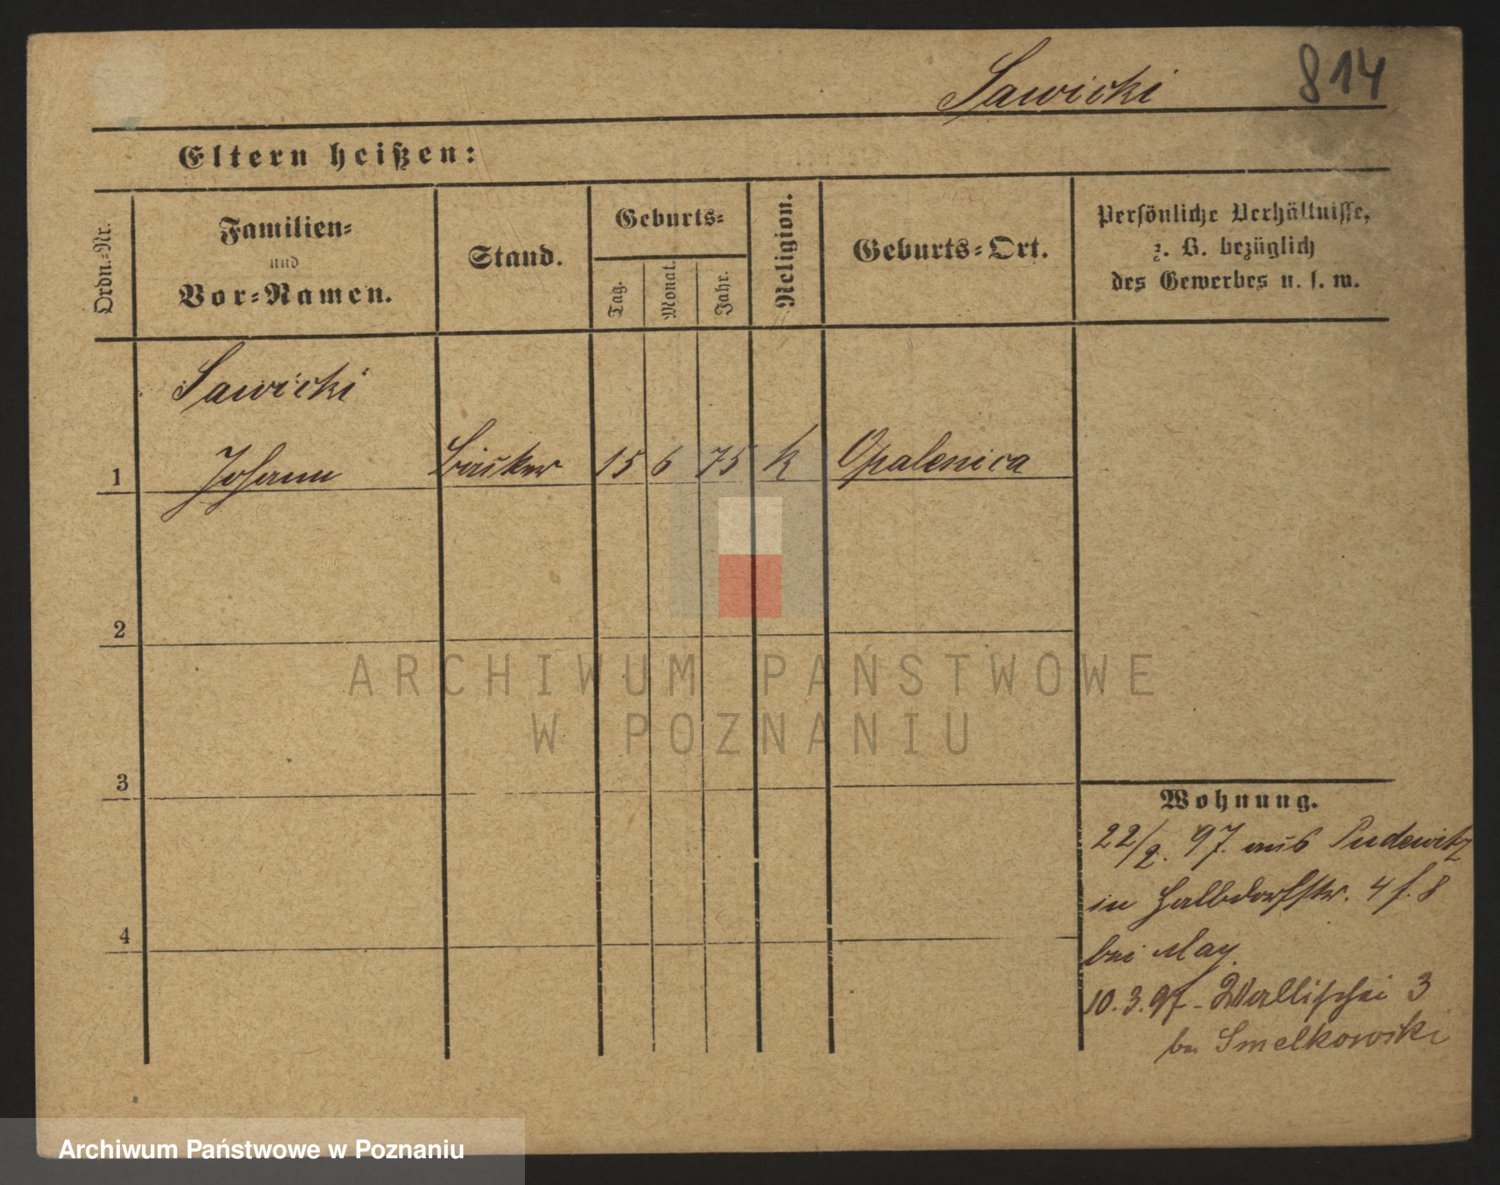 Sawicki 814
Eltern heißen:
Ordn.-Nr.
Familien-
und
Vor-Namen.
Stand.
Geburts-
Tag.
Monat.
Jahr.
Religion.
Geburts-Ort.
Persönliche Verhältnisse,
z. B. bezüglich
des Gewerbes u. s. w.
Sawicki
1 Johann 15 6 75 k Opalenica
2
3
4
Wohnung.
22/2. 97. aus Pudewitz
in Halbdorfstr. 4 f. 8
bei May.
10.3.97 - Wallischei 3
bei Smelkowski
ARCHIWUM PAŃSTWOWE
W POZNANIU
Archiwum Państwowe w Poznaniu